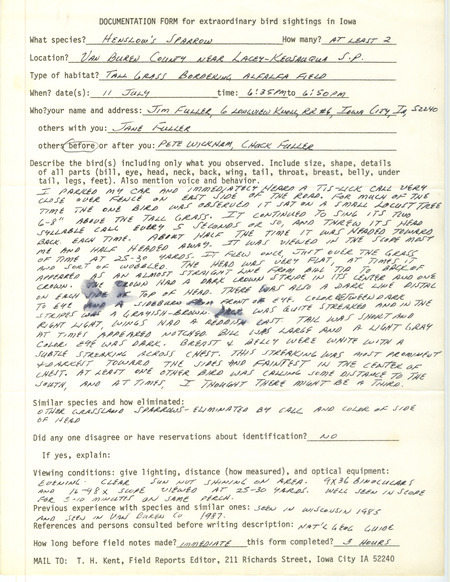 DOCUMENTATION FORM for extraordinary bird sightings in Iowa
What species? HENSLOW'S SPARROW How many? AT LEAST 2
Location? VAN BUREN COUNTY NEAR LACEY-KEOSAUQUA S.P.
Type of habitat? TALL GRASS BORDERING ALFALFA FIELD
When? date(s): 11 JULY time: 6:35PM to 6:50PM
Who? your name and address: JIM FULLER, 6 LONGVIEW KNOLL, RR #6, IOWA CITY, IA, 52240
others with you: JANE FULLER
others before or after you: PETE WICKHAM, CHUCK FULLER
Describe the bird(s) including only what you observed. Include size, shape, details
of all parts (bill, eye, head, neck, back, wing, tail, throat, breast, belly, under
tail, legs, feet). Also mention voice and behavior.
I PARKED MY CAR AND IMMEDIATELY HEARD A TIS-LICK CALL VERY
CLOSE OVER FENCE ON EAST SIDE OF THE ROAD. FOR MUCH OF THE
TIME THE ONE BIRD WAS OBSERVED IT SAT ON A SMALL LOCUST TREE
6-8" ABOVE THE TALL GRASS. IT CONTINUED TO SING ITS TWO
SYLLABLE CALL EVERY 5 SECONDS OR SO, AND THREW ITS HEAD
BACK EACH TIME. ABOUT HALF THE TIME IT WAS HEADED TOWARD
ME AND HALF HEADED AWAY. IT WAS VIEWED IN THE SCOPE MOST
OF TIME AT 25-30 YARDS. IT FLEW ONCE JUST OVER THE GRASS
AND SORT OF WOBBLED. THE HEAD WAS VERY FLAT, AT TIMES IT
APPEARED AS AN ALMOST STRAIGHT LINE FROM BILL TIP TO BACK OF
CROWN. THE CROWN HAD A DARK CROWN STRIPE IN ITS CENTER AND ONE
ON EACH SIDE OF TOP OF HEAD. THERE WAS ALSO A DARK LINE DISTAL
TO EYE AND A FROM FRONT OF EYE. COLOR BETWEEN DARK
STRIPES WAS A GRAYISH-BROWN. BACK WAS QUITE STREAKED AND IN THE
RIGHT LIGHT WINGS HAD A REDDISH CAST. TAIL WAS SHORT AND
AT TIMES APPEARED NOTCHED. BILL WAS LARGE AND A LIGHT GRAY
COLOR. EYE WAS DARK. BREAST & BELLY WERE WHITE WITH A
SUBTLE STREAKING ACROSS CHEST. THIS STREAKING WAS MOST PROMINENT
& DARKEST TOWARD THE SIDES AND FAINTEST IN THE CENTER OF
CHEST. AT LEAST ONE OTHER BIRD WAS CALLING SOME DISTANCE TO THE
SOUTH, AND AT TIMES, I THOUGHT THERE MIGHT BE A THIRD.
Similar species and how eliminated:
OTHER GRASSLAND SPARROWS-ELIMINATED BY CALL AND COLOR OF SIDE
OF HEAD
Did any one disagree or have reservations about identification? NO
If yes, explain:
Viewing conditions: give lighting, distance (how measured), and optical equipment:
EVENING- CLEAR SUN NOT SHINING ON AREA. 9X36 BINOCULARS
AND 16-48X SCOPE VIEWED AT 25-30 YARDS. WELL SEEN IN SCOPE
FOR 5-10 MINUTES ON SAME PERCH.
Previous experience with species and similar ones: SEEN IN WISCONSIN 1985
AND SEEN IN VAN BUREN CO 1987.
References and persons consulted before writing description: NAT'L GEOG GUIDE
How long before field notes made? IMMEDIATE this form completed? 3 HOURS
MAIL TO: T. H. Kent, Field Reports Editor, 211 Richards Street, Iowa City IA 52240